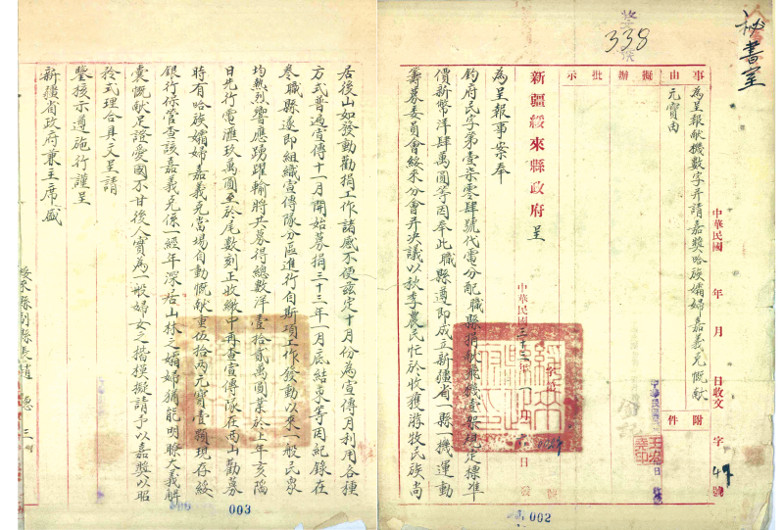 秘書室
338
事由
為呈報献機數字并請嘉獎哈族孀婦嘉義克慨献
元寶由
附件
擬辦
批示
中華民國 年 月 日收文 字 49 號
新疆綏來縣政府 呈
中華民國三十三年一月 日發
為呈報事案奉
鈞府民字第壹柒零肆號代電分配職縣捐献飛機壹架規定標準
價新幣洋肆萬圓等因奉此職縣遵即成立新疆省一縣一機運動
籌募委員會綏來分會并决議以秋季農民忙於收獲游牧民族尚
002
居後山如發動勸捐工作諸感不便茲定十月份為宣傳月利用各種
方式普遍宣傳十一月開始募捐三十三年一月底結束等因紀錄在
卷職縣遂即組織宣傳隊分區進行自斯項工作發動以來一般民衆
均熱烈響應踴躍輸將共募得總數洋壹拾貳萬圓業於上年亥陷
日先行電滙玖萬圓至於尾數刻正收繳中再查宣傳隊在西山勸募
時有哈族孀婦嘉義克當場自動慨献重伍拾兩元寶壹顆現存綏
銀行保管查該嘉義克係一經年深居山林之孀婦猶能明瞭大義解
囊慨献足證愛國不甘後人實為一般婦女之楷模擬請予以嘉獎以昭
矜式理合具文呈請
鑒核示遵施行謹呈
新疆省政府兼主席盛
綏來縣副縣長趙 三
003